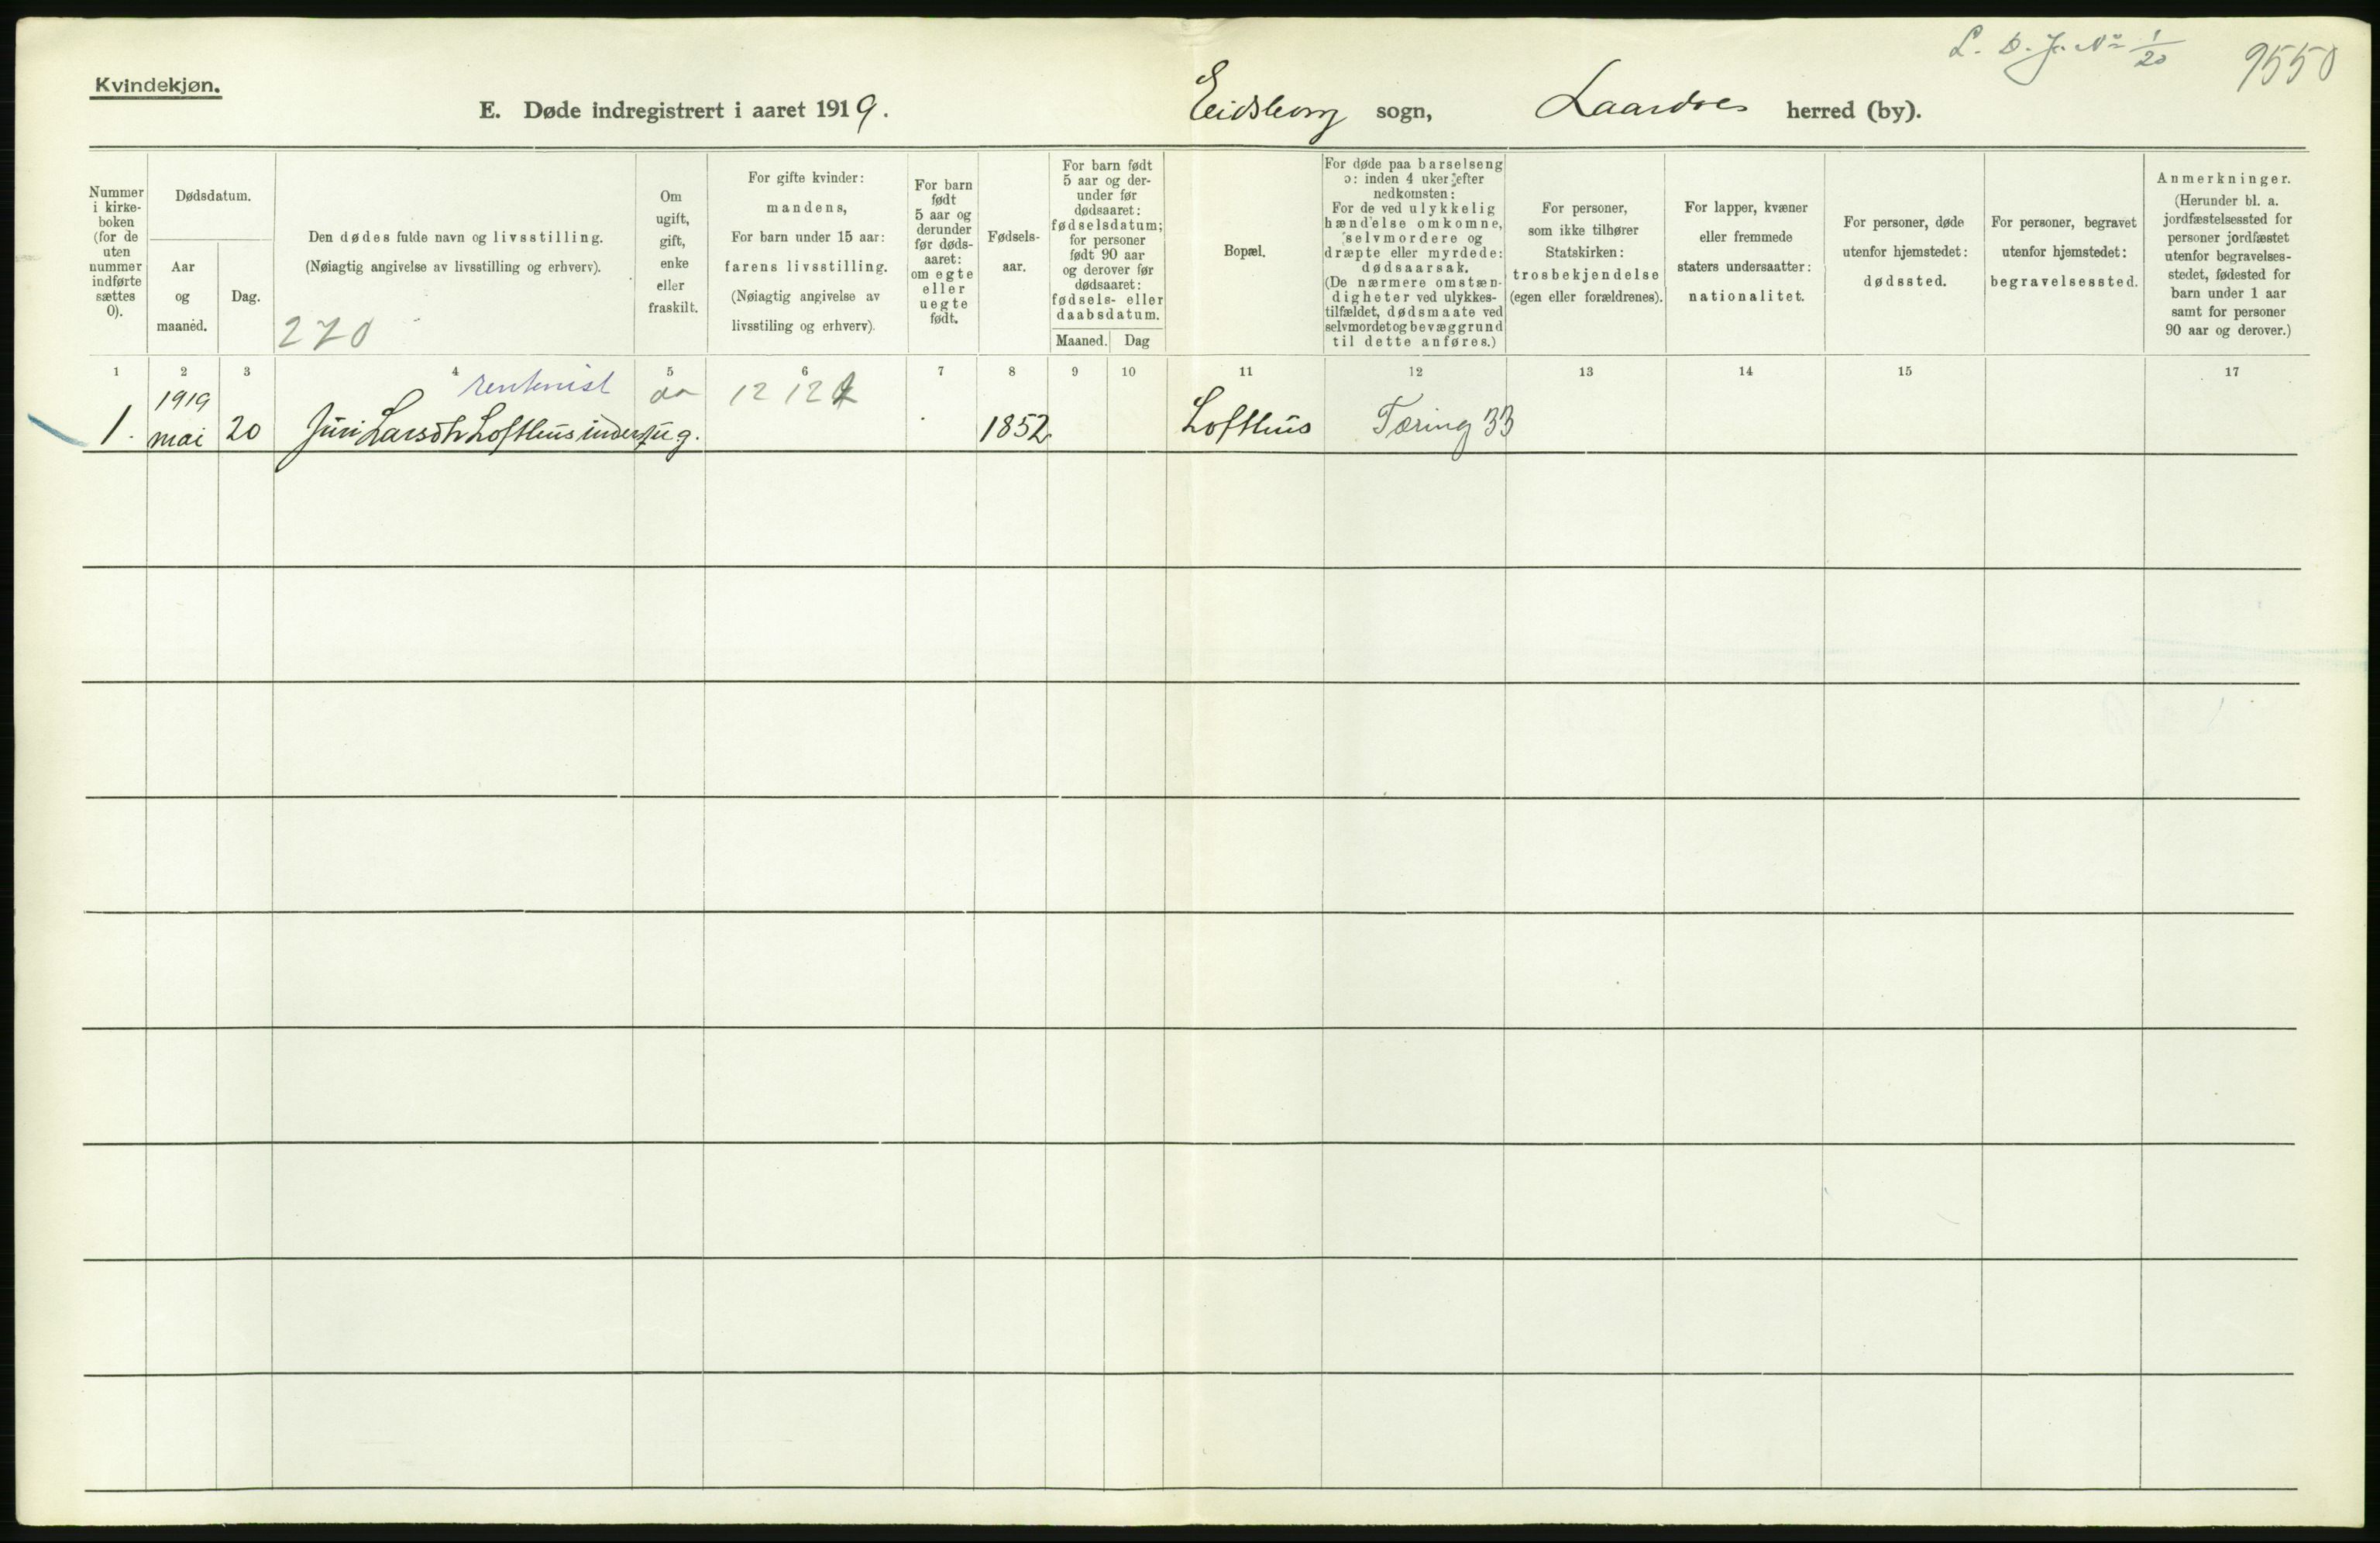 L. D. J. No 1/20
9550
Kvindekjøn.
E. Døde indregistrert i aaret 1919. Eidsborg sogn, Laardal herred (by).
Nummer i kirkeboken (for de uten nummer indførte sættes 0).
Dødsdatum.
Aar og maaned.
Dag.
Den dødes fulde navn og livsstilling.
(Nøiagtig angivelse av livsstilling og erhverv).
270
Om ugift, gift, enke eller fraskilt.
For gifte kvinder:
mandens,
For barn under 15 aar:
farens livsstilling.
(Nøiagtig angivelse av
livsstiling og erhverv).
For barn født 5 aar og derunder før dødsaaret: om egte eller uegte født.
Fødselsaar.
For barn født 5 aar og derunder før dødsaaret: fødselsdatum; for personer født 90 aar og derover før dødsaaret: fødsels- eller daabsdatum.
Maaned. Dag
Bopæl.
For døde paa barselseng ɔ: inden 4 uker efter nedkomsten: For de ved ulykkelig hændelse omkomne, selvmordere og dræpte eller myrdede: dødsaarsak. (De nærmere omstændigheter ved ulykkestilfældet, dødsmaate ved selvmordet og bevæggrund til dette anføres.)
For personer, som ikke tilhører Statskirken: trosbekjendelse (egen eller forældrenes).
For lapper, kvæner eller fremmede staters undersaatter: nationalitet.
For personer, døde utenfor hjemstedet: dødssted.
For personer, begravet utenfor hjemstedet: begravelsessted.
Anmerkninger.
(Herunder bl. a. jordfæstelsessted for personer jordfæstet utenfor begravelsesstedet, fødested for barn under 1 aar samt for personer 90 aar og derover.)
1 2 3 4 5 6 7 8 9 10 11 12 13 14 15 17
1919 rentenist 12 12
1. mai 20 Juri Larsdtr Lofthus inderst ug. 1852 Lofthus Tæring 33